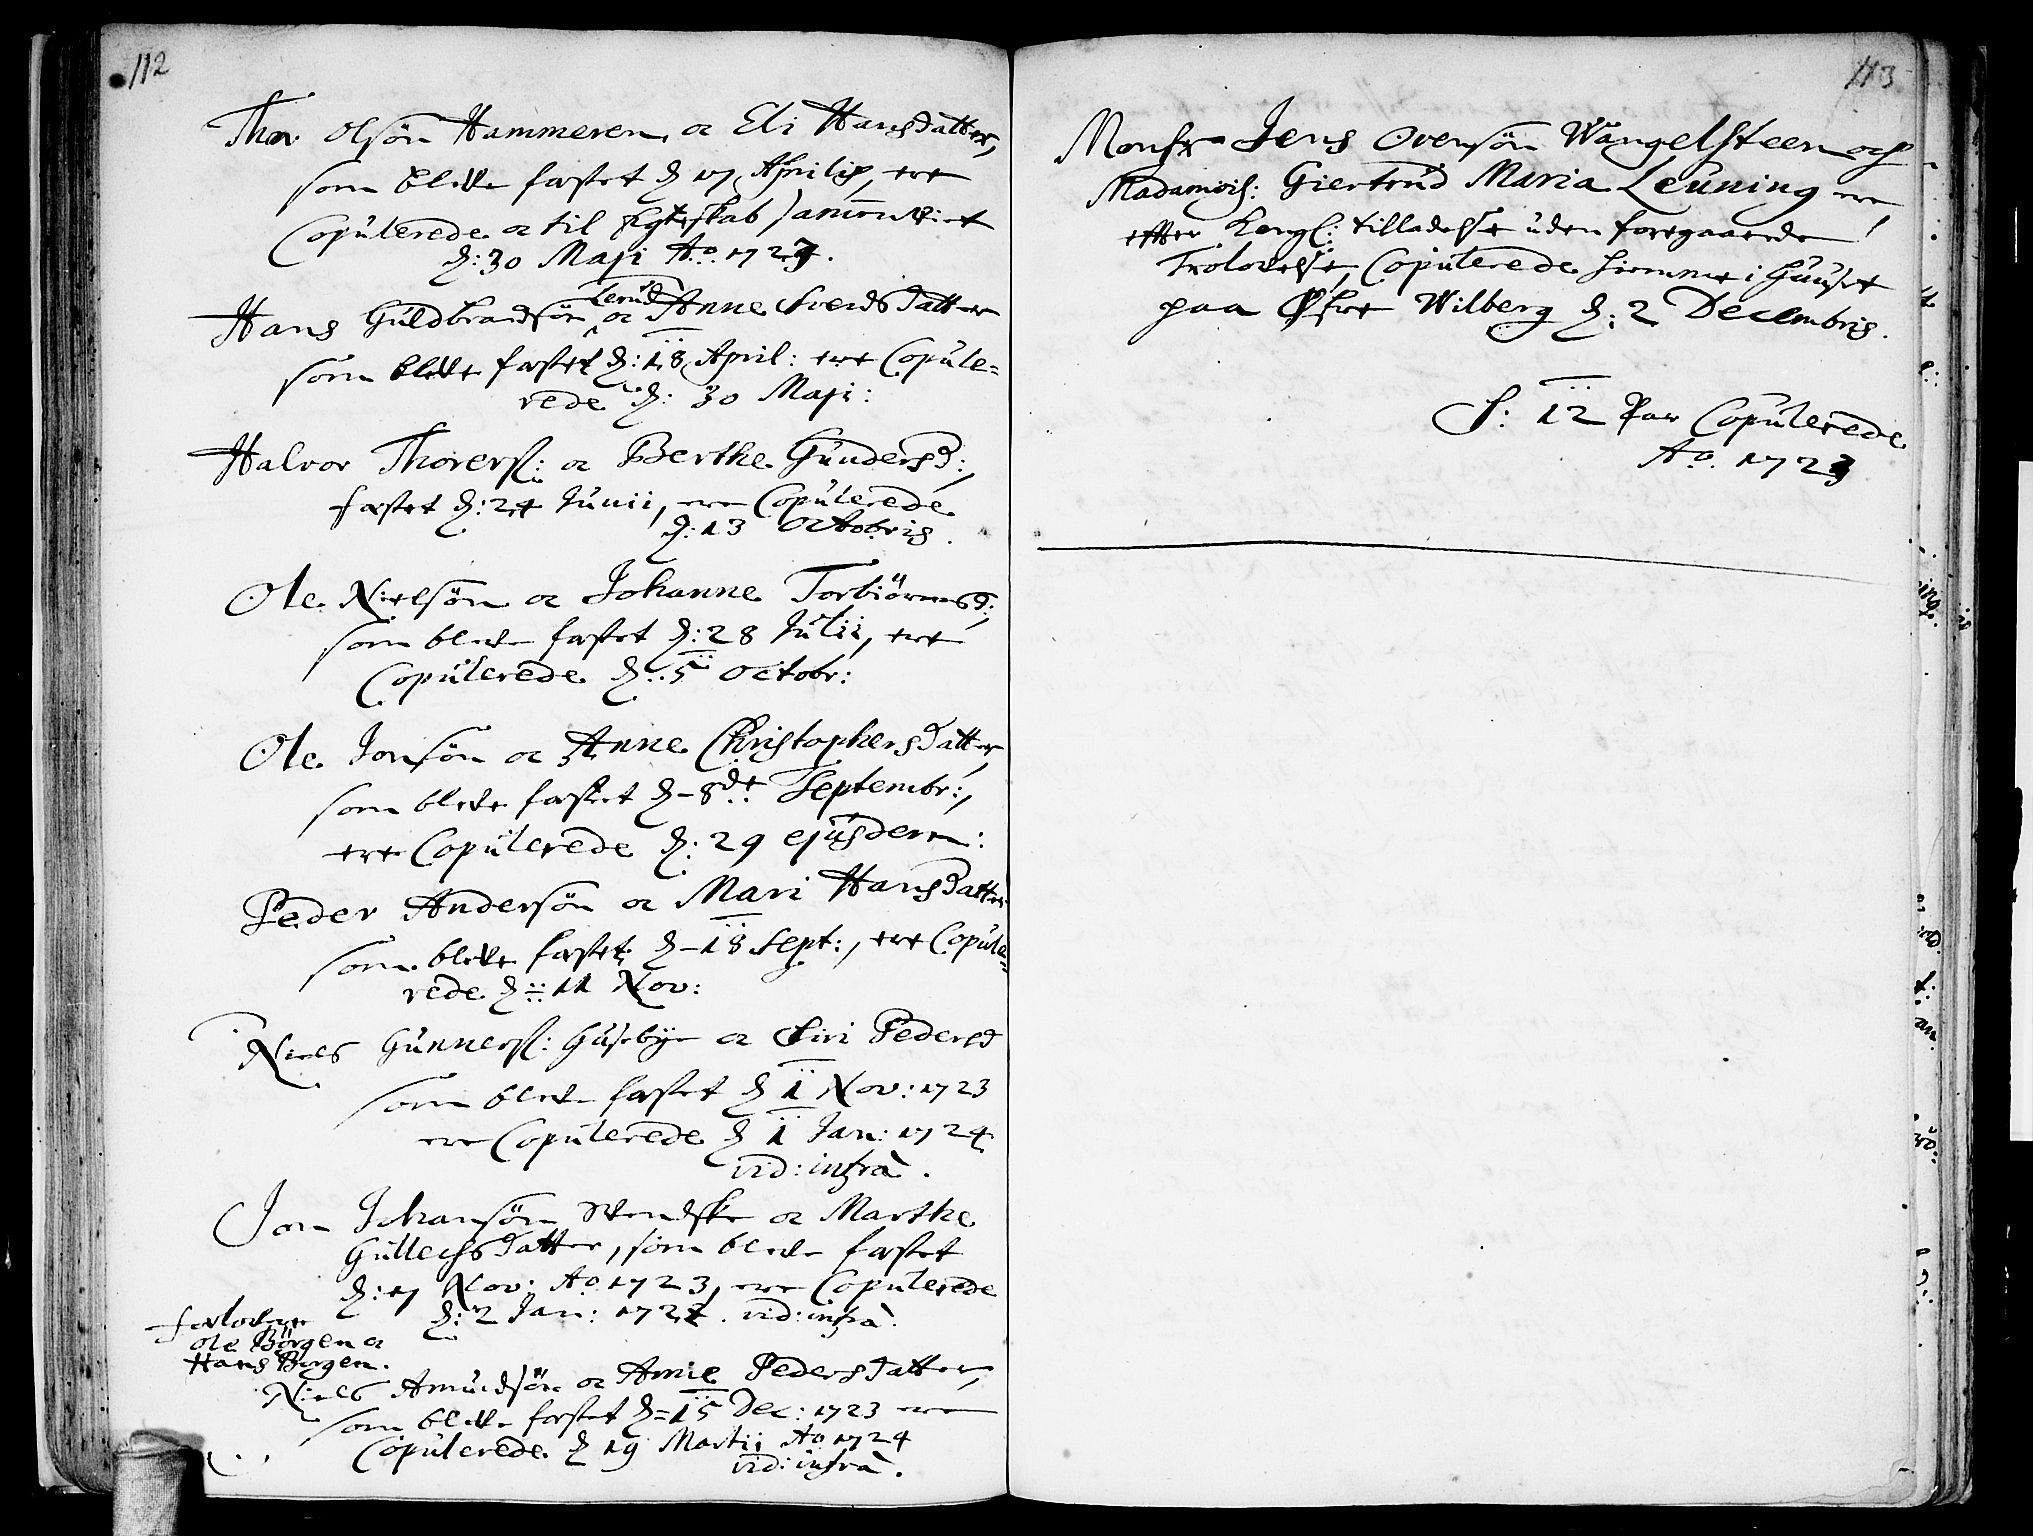 112
Thor Olsön Hammeren oc Eli Hansdatter,
som bleve fæstet d 17 Aprilis, ere
Copulerede oc til Egteskab sammenviet
d: 30 Maji Ao. 1723.
Hans Guldbrandsön Lerud oc Anne Svends datter
som bleve fæstet d: 18 April: ere Copule=
rede d: 30 Maji:
Halvor Thorers: oc Berthe Gundersd:,
fæstet d: 24 Junii, ere Copulerede
d: 13 Octobris.
Ole Nielsön oc Johanne Torbiörnsd:,
som bleve fæstet d: 28 Julii, ere
Copulerede d: 5 Octobr:
Ole Jonsön oc Anne Christophersdatter
som bleve fæstet d- 8de Septembr:,
ere Copulerede d: 29 ejusdem:
Peder Andersön oc Mari Hansdatter
som bleve fæstet d- 18 Sept:, ere Copule=
rede d: 11 Nov:
Niels Gunners: Husebye oc Siri Pedersd
som bleve fæstet d 1 Nov: 1723
ere Copulerede d 1 Jan: 1724
vid: infra.
Jon Johansön Svendske oc Marthe
Gullechsdatter, som bleve fæstet
d: 17 Nov: Ao 1723, ere Copulerede
d: 2 Jan: 1724. vid: infra.
forlovere
Ole Börgen oc
Hans Börgen.
Niels Amundsön oc Anne Pedersdatter,
som bleve fæstet d= 15 Dec: 1723 ere
Copulerede d 19 Martii Ao 1724
vid: infra.
113
Monsr Jens Ovensön Wangelsteen och
Madamois: Giertrud Maria Leuning ere
efter Kongl: tilladelse uden foregaaende
Trolovelse, Copulerede hiemme i Huuset
paa Øfre Wilberg d: 2 Decembris.
S: 12 Par Copulerede
Ao. 1723